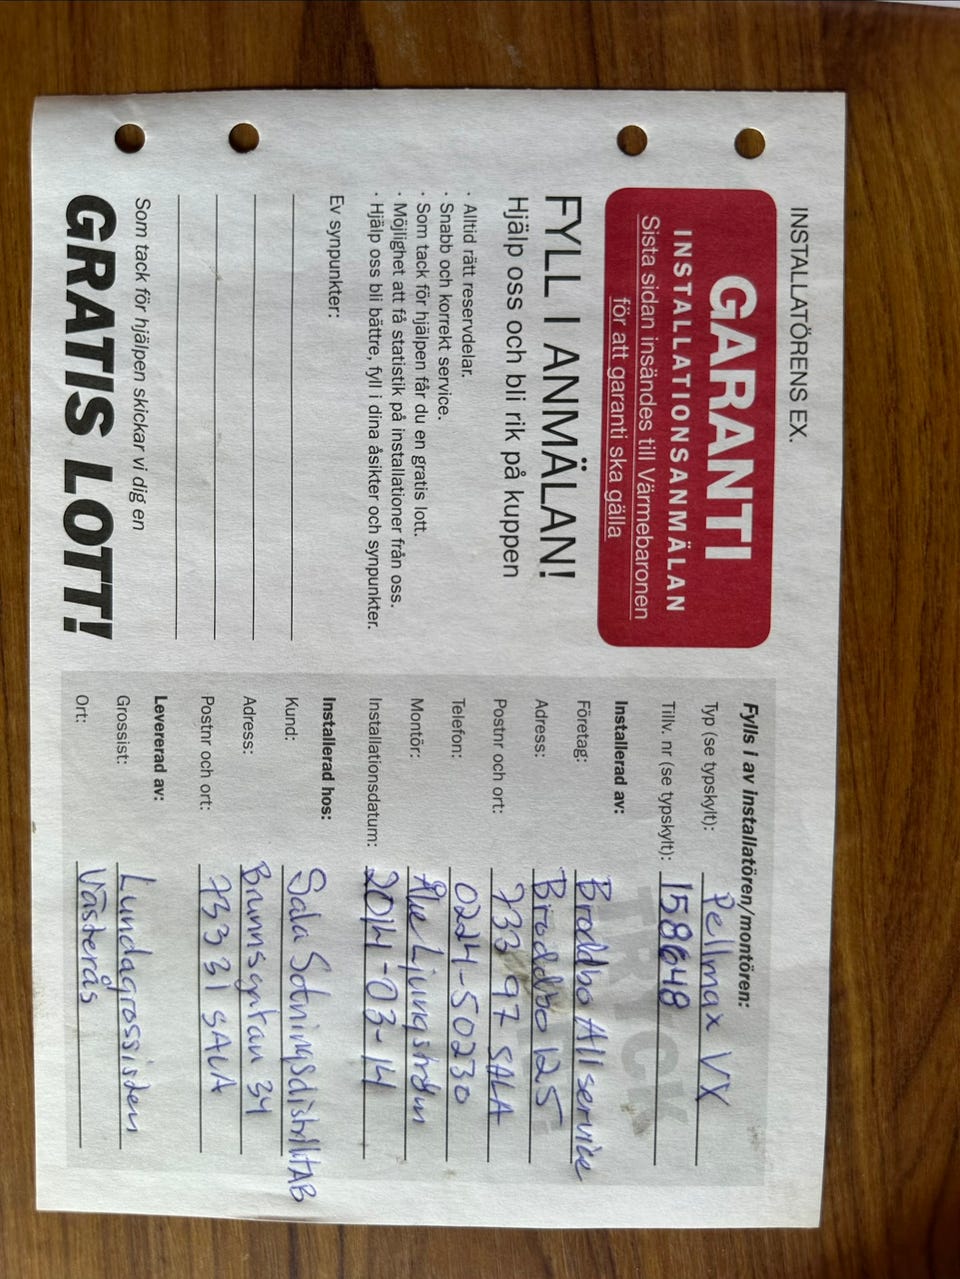 INSTALLATÖRENS EX.
GARANTI
INSTALLATIONSANMÄLAN
Sista sidan insändes till Värmebaronen
för att garanti ska gälla
FYLL I ANMÄLAN!
Hjälp oss och bli rik på kuppen
· Alltid rätt reservdelar.
· Snabb och korrekt service.
· Som tack för hjälpen får du en gratis lott.
· Möjlighet att få statistik på installationer från oss.
· Hjälp oss bli bättre, fyll i dina åsikter och synpunkter.
Ev synpunkter:
Som tack för hjälpen skickar vi dig en
GRATIS LOTT!
Fylls i av installatören/montören:
Typ (se typskylt): Pellmax VX
Tillv. nr (se typskylt): 158648
Installerad av:
Företag: Broddbo Allservice
Adress: Broddbo 125
Postnr och ort: 733 97 SALA
Telefon: 0224-50230
Montör: Åke Ljungström
Installationsdatum: 2014-03-14
Installerad hos:
Kund: Sala Sotningsdistrikt AB
Adress: Brunnsgatan 34
Postnr och ort: 733 31 SALA
Levererad av:
Grossist: Lundagrossisten
Ort: Västerås